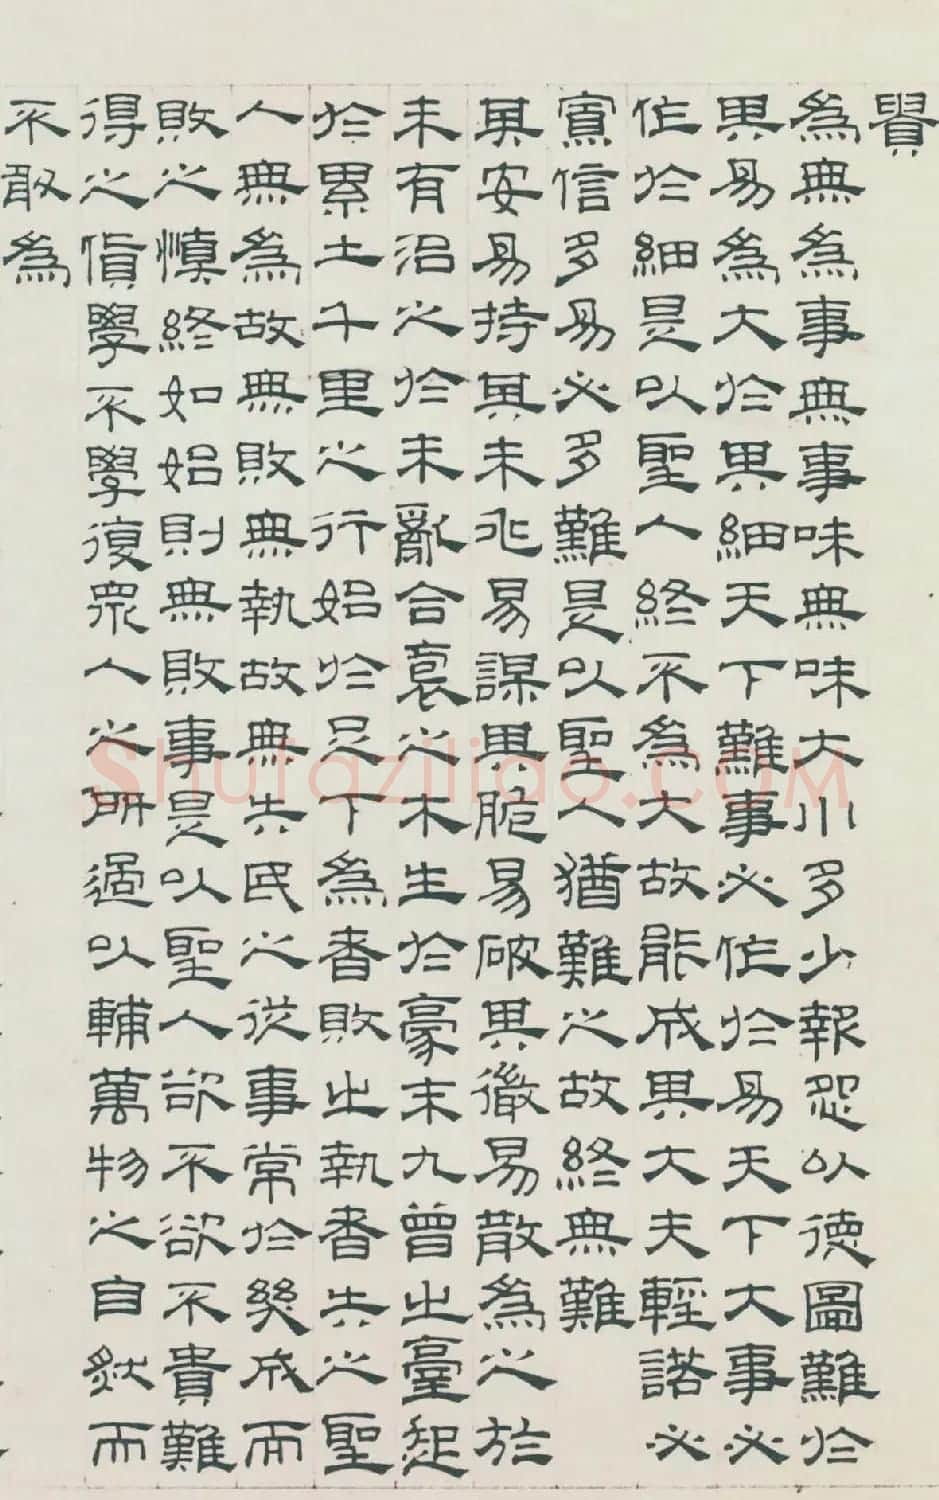 貴
為無為事無事味無味大小多少報怨以德圖難於
其易為大於其細天下難事必作於易天下大事必
作於細是以聖人終不為大故能成其大夫輕諾必
寡信多易必多難是以聖人猶難之故終無難
其安易持其未兆易謀其脆易破其微易散為之於
未有治之於未亂合袌之木生於豪末九曾之臺起
於累土千里之行始於足下為者敗之執者失之聖
人無為故無敗無執故無失民之從事常於幾成而
敗之慎終如始則無敗事是以聖人欲不欲不貴難
得之貨學不學復眾人之所過以輔萬物之自然而
不敢為
Shufaziliao.com